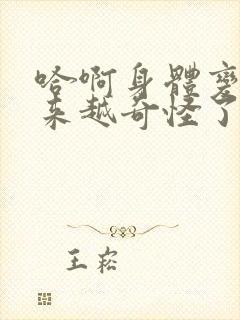 哈啊身體變
来越奇怪了
王崧